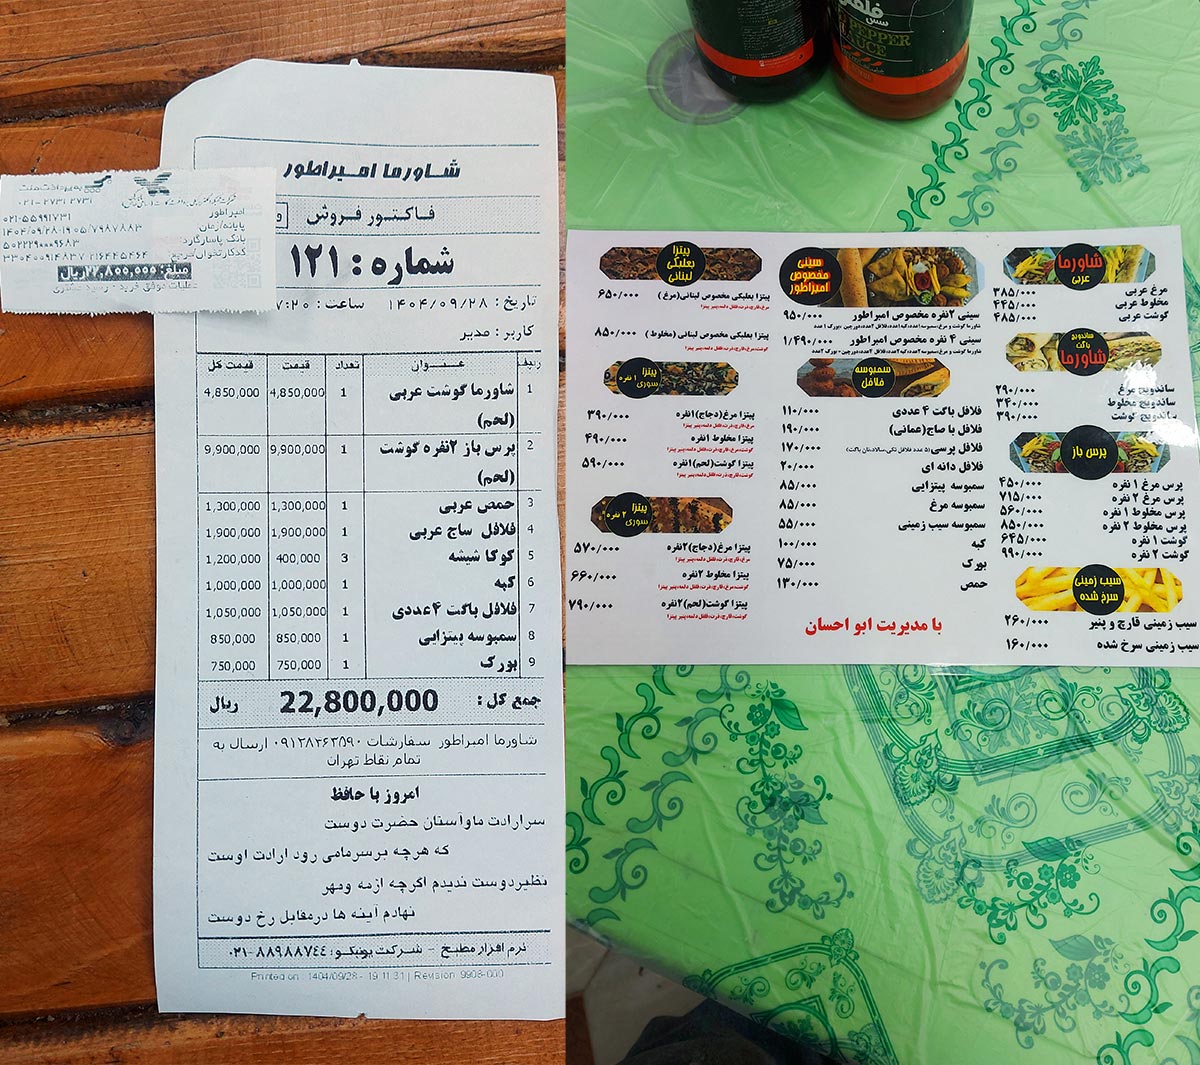 شاورما امپراطور
فاکتور فروش
شماره : ۱۲۱
تاریخ : ۱۴۰۴/۰۹/۲۸ ساعت : ۷:۲۰
کاربر : مدیر
ردیف عنـــوان تعداد قیمت قیمت کل
1 شاورما گوشت عربی (لحم) 1 4,850,000 4,850,000
2 پرس باز ۲نفره گوشت (لحم) 1 9,900,000 9,900,000
3 حمص عربی 1 1,300,000 1,300,000
4 فلافل ساج عربی 1 1,900,000 1,900,000
5 کوکا شیشه 3 400,000 1,200,000
6 کپه 1 1,000,000 1,000,000
7 فلافل باگت ۴عددی 1 1,050,000 1,050,000
8 سمبوسه پیتزایی 1 850,000 850,000
9 بورک 1 750,000 750,000
جمع کل : 22,800,000 ریال
شاورما امپراطور سفارشات ۰۹۱۲۸۲۶۳۵۹۰ ارسال به
تمام نقاط تهران
امروز با حافظ
سرارادت ماوآستان حضرت دوست
که هرچه برسرمامی رود ارادت اوست
نظیردوست ندیدم اگرچه ازمه ومهر
نهادم آینه ها درمقابل رخ دوست
نرم افزار مطبخ - شرکت یونیکو: ۸۸۹۸۸۷۴۴-۰۲۱
Printed on : 1404/09/28 - 19:11:31 | Revision: 9908-000
به پرداخت ملت
۰۲۱-۲۷۳۱ ۲۷۳۱
امپراطور
۰۲۱-۵۵۹۹۱۷۳۱
پایانه/زمان
۱۴۰۴/۰۹/۲۸-۱۹:۰۵/۷۹۸۷۸۸۳
بانک پاسارگارد
۵۰۲۲۲۹۰۰۰۹۶۸۳
مبلغ: ۲۲,۸۰۰,۰۰۰ریال
PEPPER
SAUCE
سس
شاورما
عربی
مرغ عربی ۳۸۵/۰۰۰
مخلوط عربی ۴۴۵/۰۰۰
گوشت عربی ۴۸۵/۰۰۰
ساندویچ
باگت
شاورما
ساندویچ مرغ ۲۹۰/۰۰۰
ساندویچ مخلوط ۳۴۰/۰۰۰
ساندویچ گوشت ۳۹۰/۰۰۰
پرس باز
پرس مرغ ۱ نفره ۴۵۰/۰۰۰
پرس مرغ ۲ نفره ۷۱۵/۰۰۰
پرس مخلوط ۱ نفره ۵۶۰/۰۰۰
پرس مخلوط ۲ نفره ۸۵۰/۰۰۰
گوشت ۱ نفره ۶۴۵/۰۰۰
گوشت ۲ نفره ۹۹۰/۰۰۰
سیب زمینی
سرخ شده
سیب زمینی قارچ و پنیر ۲۶۰/۰۰۰
سیب زمینی سرخ شده ۱۶۰/۰۰۰
سینی
مخصوص
امپراطور
سینی ۲نفره مخصوص امپراطور ۹۵۰/۰۰۰
سینی ۴ نفره مخصوص امپراطور ۱/۴۹۰/۰۰۰
سمبوسه
فلافل
فلافل باگت ۴ عددی ۱۱۰/۰۰۰
فلافل با صاج(عمانی) ۱۹۰/۰۰۰
فلافل پرسی (۵ عدد فلافل تکی،سالاد،نان باگت) ۱۷۰/۰۰۰
فلافل دانه ای ۲۰/۰۰۰
سمبوسه پیتزایی ۸۵/۰۰۰
سمبوسه مرغ ۸۵/۰۰۰
سمبوسه سیب زمینی ۵۵/۰۰۰
کبه ۱۰۰/۰۰۰
بورک ۷۵/۰۰۰
حمص ۱۳۰/۰۰۰
با مدیریت ابو احسان
پیتزا
بعلبکی
لبنانی
پیتزا بعلبکی مخصوص لبنانی(مرغ) ۶۵۰/۰۰۰
مرغ،قارچ،ذرت،فلفل دلمه،پنیر پیتزا
پیتزا بعلبکی مخصوص لبنانی (مخلوط) ۸۵۰/۰۰۰
گوشت،مرغ،قارچ،ذرت،فلفل دلمه،پنیر پیتزا
پیتزا ۱ نفره
سوری
پیتزا مرغ(دجاج)۱نفره ۳۹۰/۰۰۰
مرغ،قارچ،ذرت،فلفل دلمه،پنیر پیتزا
پیتزا مخلوط ۱نفره ۴۹۰/۰۰۰
گوشت،مرغ،قارچ،ذرت،فلفل دلمه،پنیر پیتزا
پیتزا گوشت(لحم)۱نفره ۵۹۰/۰۰۰
گوشت،قارچ،ذرت،فلفل دلمه،پنیر پیتزا
پیتزا ۲ نفره
سوری
پیتزا مرغ(دجاج)۲نفره ۵۷۰/۰۰۰
مرغ،قارچ،ذرت،فلفل دلمه،پنیر پیتزا
پیتزا مخلوط ۲نفره ۶۶۰/۰۰۰
گوشت،مرغ،قارچ،ذرت،فلفل دلمه،پنیر پیتزا
پیتزا گوشت(لحم)۲نفره ۷۹۰/۰۰۰
گوشت،قارچ،ذرت،فلفل دلمه،پنیر پیتزا